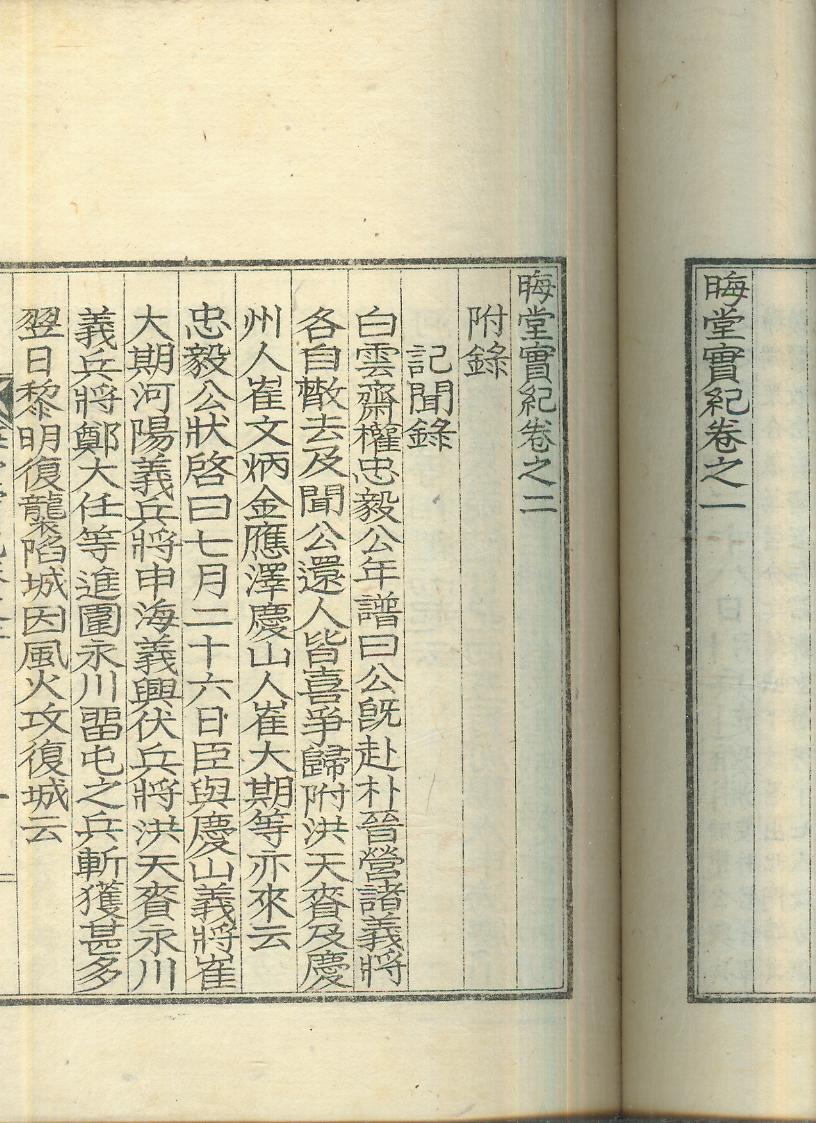 晦堂實紀卷之一
晦堂實紀卷之二
附錄
記聞錄
白雲齋權忠毅公年譜曰公旣赴朴晉營諸義將
各自散去及聞公還人皆喜爭歸附洪天賚及慶
州人崔文炳金應澤慶山人崔大期等亦來云
忠毅公狀啓曰七月二十六日臣與慶山義將崔
大期河陽義兵將申海義興伏兵將洪天賚永川
義兵將鄭大任等進圍永川留屯之兵斬獲甚多
翌日黎明復襲陷城因風火攻復城云